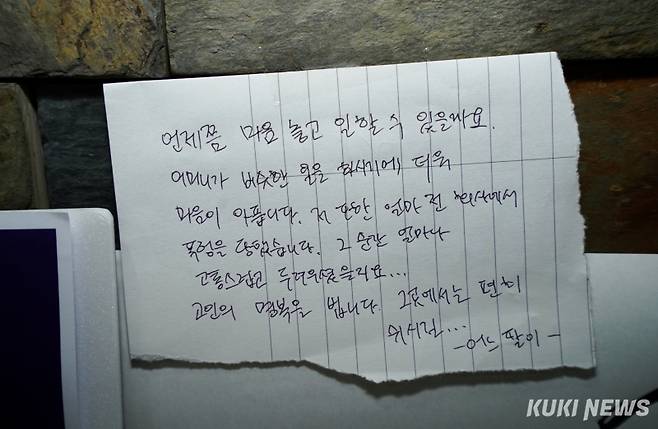 언제쯤 마음 놓고 일할 수 있을까요.
어머니가 비슷한 일을 하시기에 더욱
마음이 아픕니다. 저 또한 얼마 전 회사에서
폭험을 당했습니다. 그 순간 얼마나
고통스럽고 두려우셨을까요...
고인의 명복을 빕니다. 그곳에서는 편히
쉬시길...
-어느 딸이-
KUKI NEWS